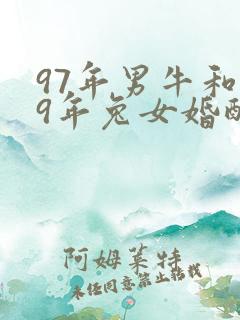 97年男牛和
9年兔女婚配
阿姆莱特
未经同意禁止转载